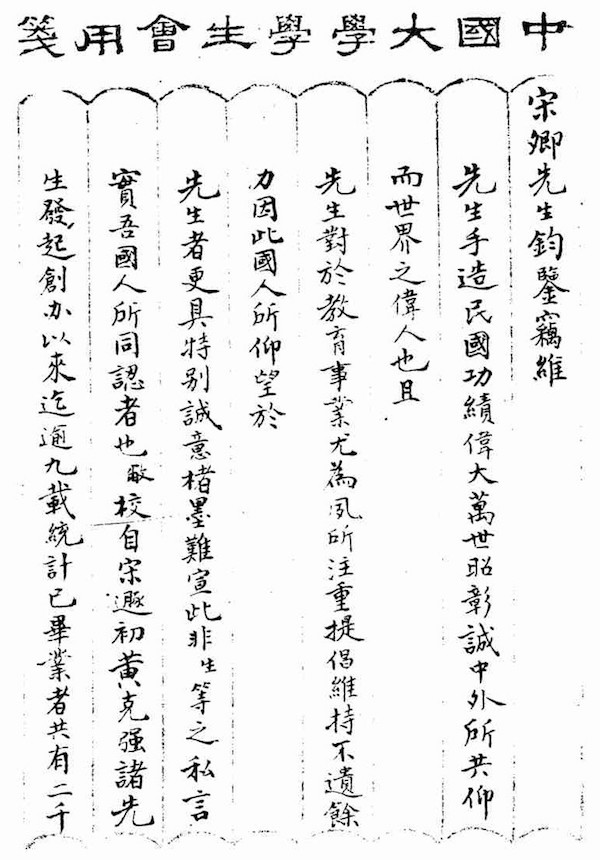 中國大學學生會用箋
宋卿先生鈞鑒竊維
先生手造民國功績偉大萬世昭彰誠中外所共仰
而世界之偉人也且
先生對於教育事業尤為夙所注重提倡維持不遺餘
力因此國人所仰望於
先生者更具特別誠意楮墨難宣此非生等之私言
實吾國人所同認者也敝校自宋遯初黃克强諸先
生發起創办以來迄逾九載統計已畢業者共有二千